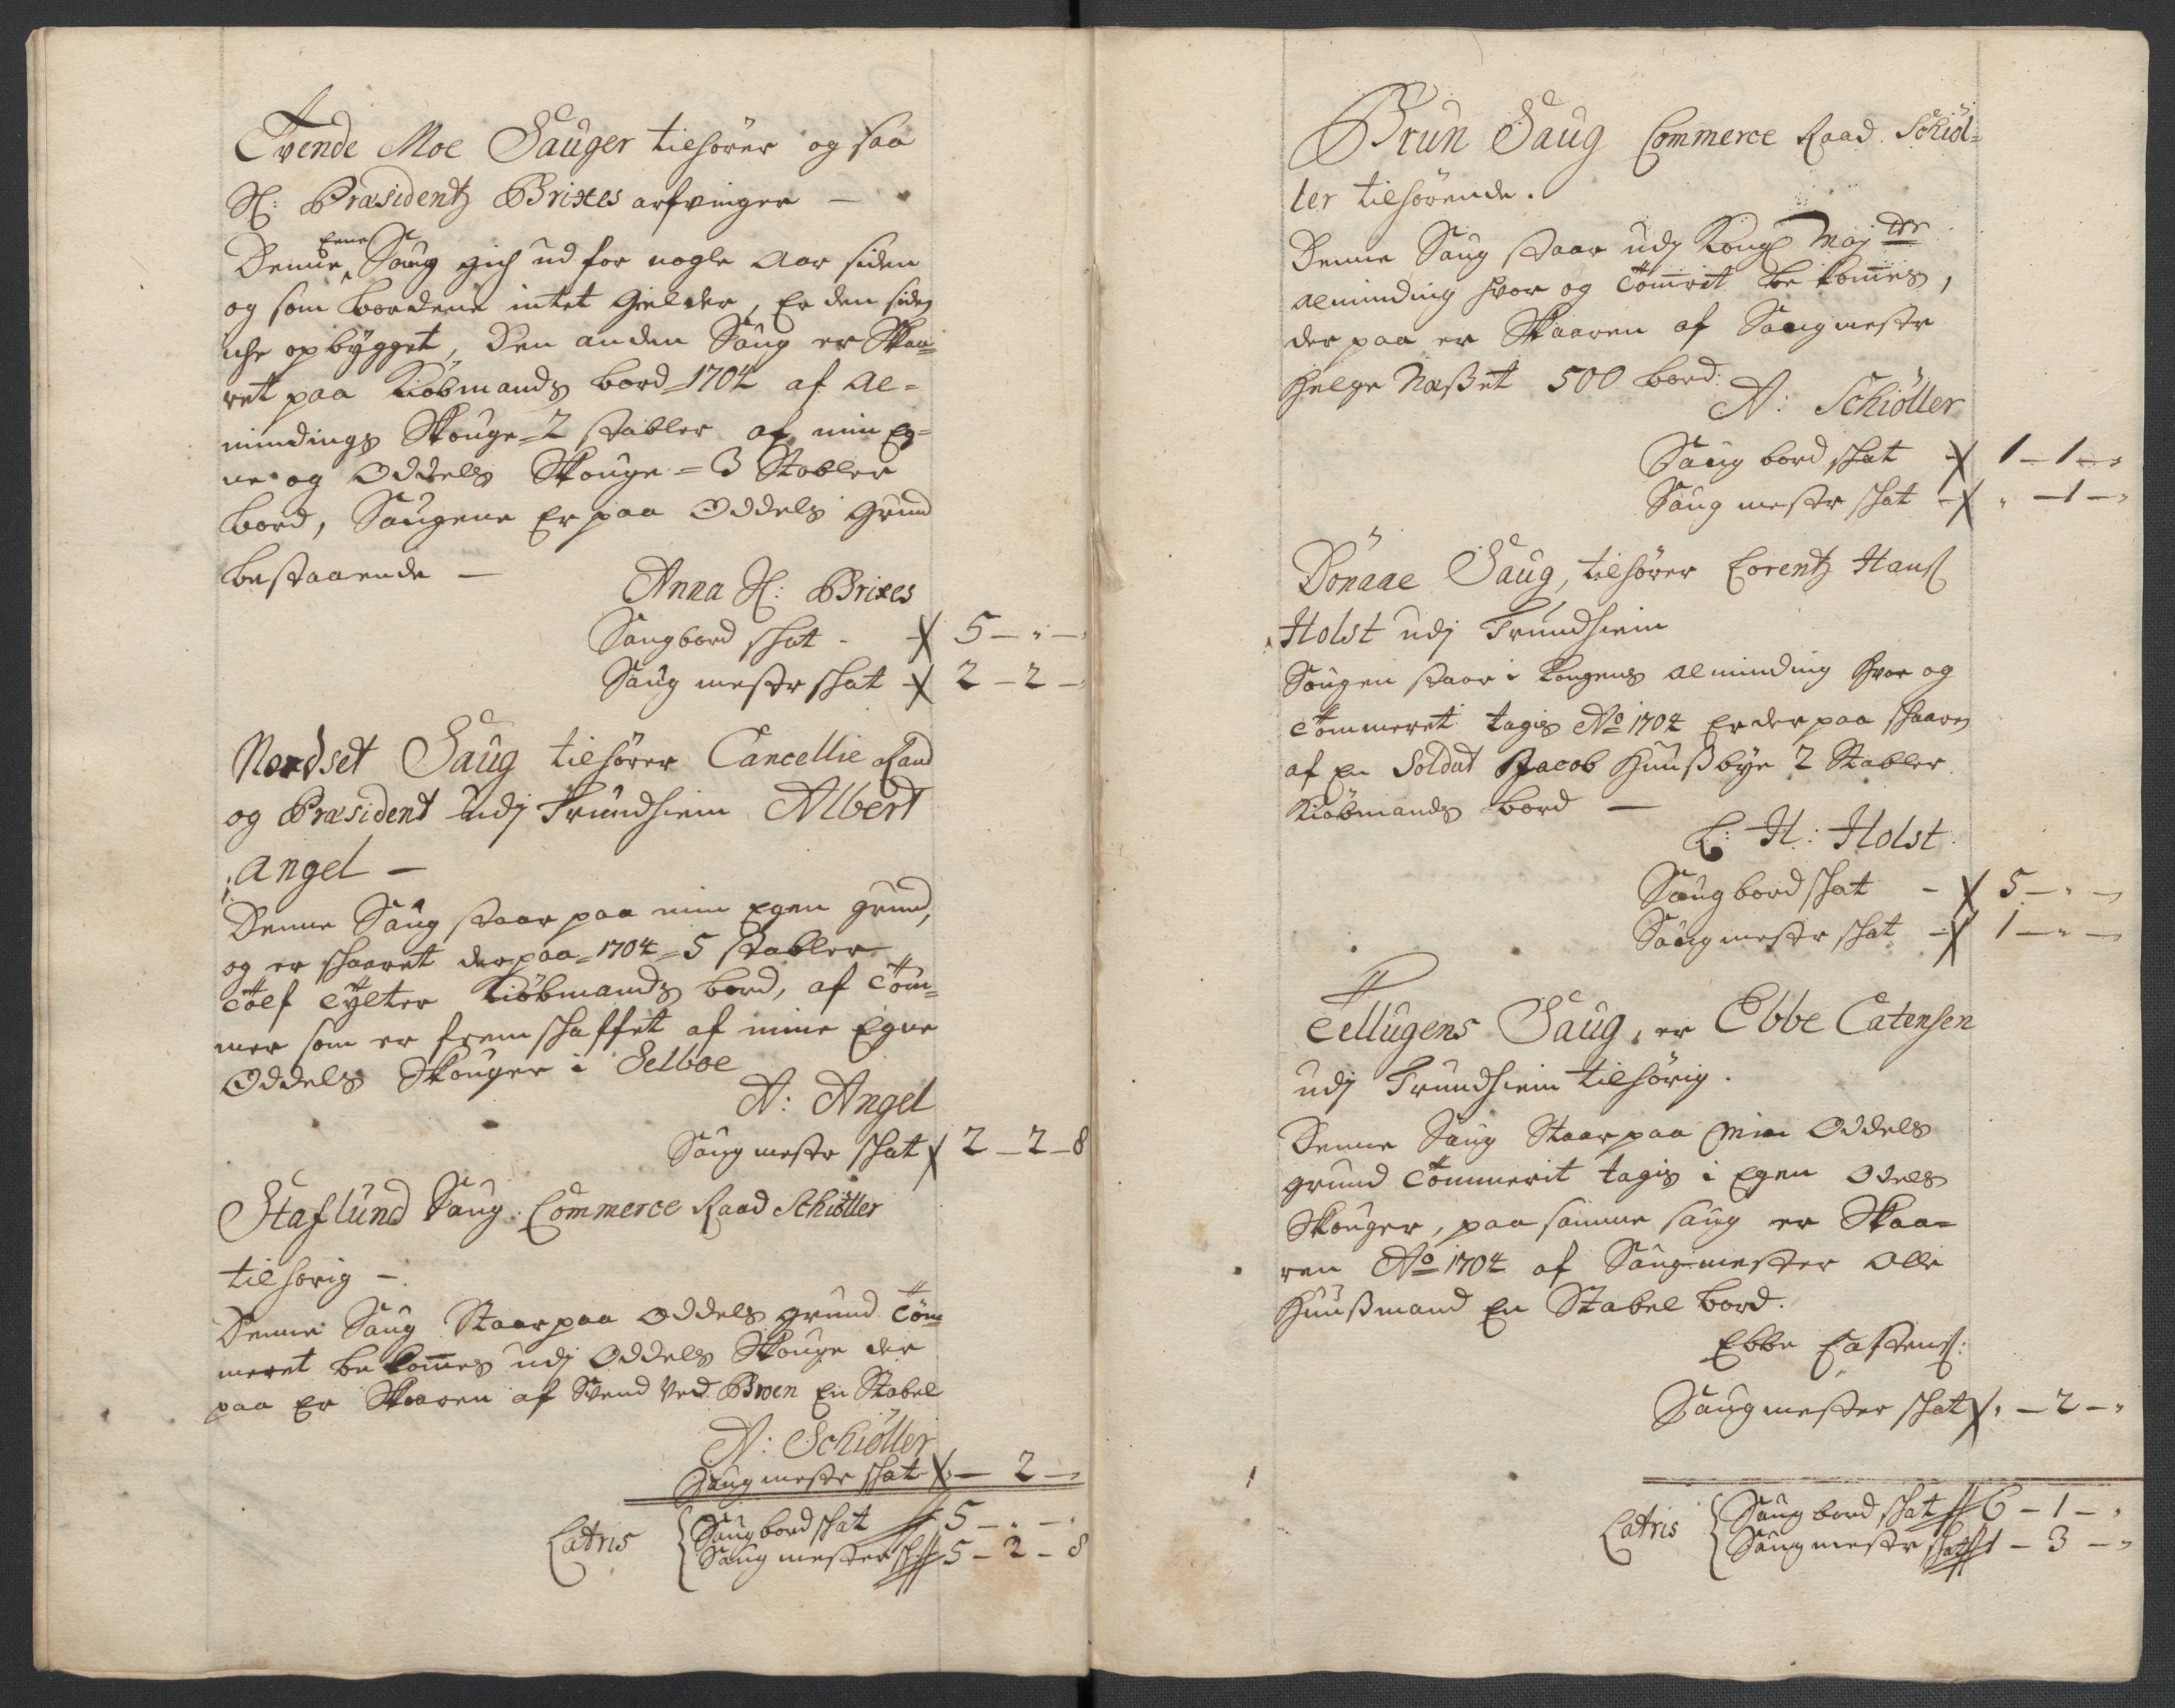 Tvende Moe Sauger tilhører og saa
Sl: Præsidentz Brixes arfvinger —
Denne Eene Saug gich ud for nogle Aar siden
og som bordene intet gielder, Er den siden
iche opbygget, Den anden Saug er Skaa=
ret paa Kiöbmands bord 1704 af Al=
mindings Skouge=2 stabler af min Eg=
ne og Oddels Skouge=3 Stabler
bord, Saugene Er paa Oddels Grund
bestaaende —
Anna Sl: Brixes
Saugbord skat - 5 - " -
Saug mestr skat - 2 - 2 -
Nordset Saug tilhører Cancellie Raad
og Præsident udj Trundhiem Albert
Angel —
Denne Saug staar paa min Egen grund,
og er skaaret der paa=1704=5 stabler
Tölf Tylter Kiöbmands bord, af Töm=
mer som er frem skaffet af mine Egne
Oddels Skouger i Selboe
A: Angel
Saug mestr skat 2 - 2 - 8
Staflund Saug. Commerce Raad Schiöller
tilhörig —.
Denne Saug Staar paa Oddels grund Töm
meret bekom̄es udj Oddels Skouge der
paa Er Skaaren af Svend Ved Broen En Stabel
A: Schiöller
Saug mestr skat - 2 -
Latris { Saugbord skat 5 - " -
Saug mester sk: 5 - 2 - 8
Brun Saug Commerce Raad Schiöl=
ler tilhørende.
Denne Saug staar udj Kongl May:ttz
Alminding hvor og Töm̄rit bekom̄es,
der paa er Skaaren af Saugmestr
Helge Næsset 500 bord.
A: Schiöller
Saug bord skat 1 - 1 - "
Saug mestr skat - " - 1 - "
Dönaae Saug, tilhører Lorentz Hanss
Holst udj Trundhiem
Saugen staar i Kongens Alminding hvor og
Tömmeret tagis Ao 1704 Er der paa skaaren
af En Soldat Jacob Huussbye 2 Stabler
Kiöbmands bord —
L: H: Holst
Saugbord skat - 5 - " -
Saugmestr skat - 1 - " -
Tellugens Saug, er Ebbe Catensen
udj Trundhiem tilhørig.
Denne Saug Staar paa Min Oddels
grund Tömmerit tagis i Egen Odels
Skouger, paa samme saug er Skaa=
ren Ao 1704 af Saugmester Olle
Huussmand En Stabel bord.
Ebbe Castens:
Saugmester skat " - 2 - "
Latris { Saug bord skat 6 - 1 - "
Saugmestr skat 1 - 3 - "